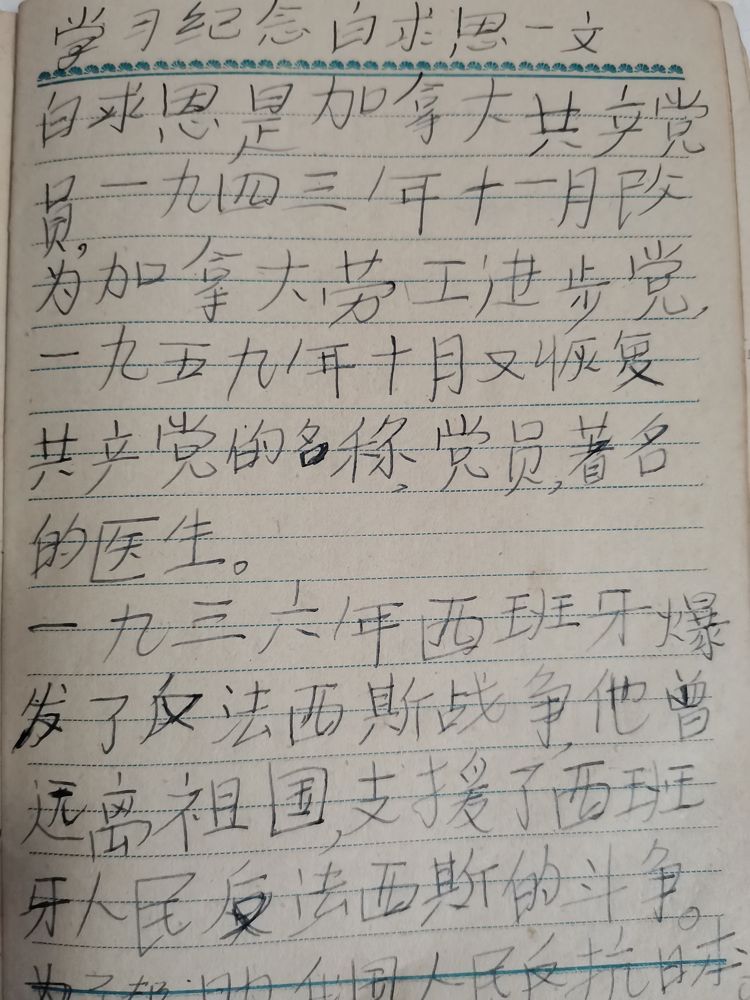 学习纪念白求恩一文
白求恩是加拿大共产党
员,一九四三年十一月改
为加拿大劳工进步党,
一九五九年十月又恢复
共产党的名称,党员,著名
的医生。
一九三六年西班牙爆
发了反法西斯战争,他曾
远离祖国,支援了西班
牙人民反法西斯的斗争。
为了帮助我国人民反抗日本